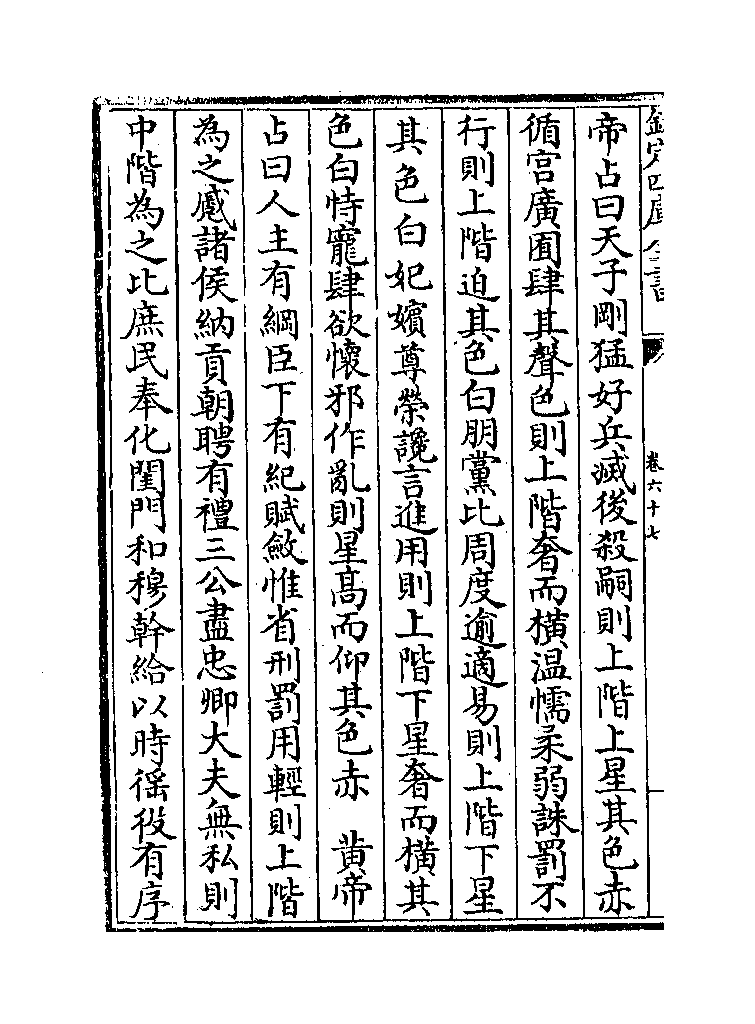 欽定四庫全書
卷六十七
帝占曰天子剛猛好兵滅後殺嗣則上階上星其色赤
循宫廣囿肆其聲色則上階奢而橫温懦柔弱誅罰不
行則上階迫其色白朋黨比周度逾適易則上階下星
其色白妃嬪尊榮讒言進用則上階下星奢而橫其
色白恃寵肆欲懷邪作亂則星髙而仰其色赤　黄帝
占曰人主有綱臣下有紀賦斂惟省刑罰用輕則上階
為之戚諸侯納貢朝聘有禮三公盡忠卿大夫無私則
中階為之比庶民奉化閨門和穆幹給以時徭役有序